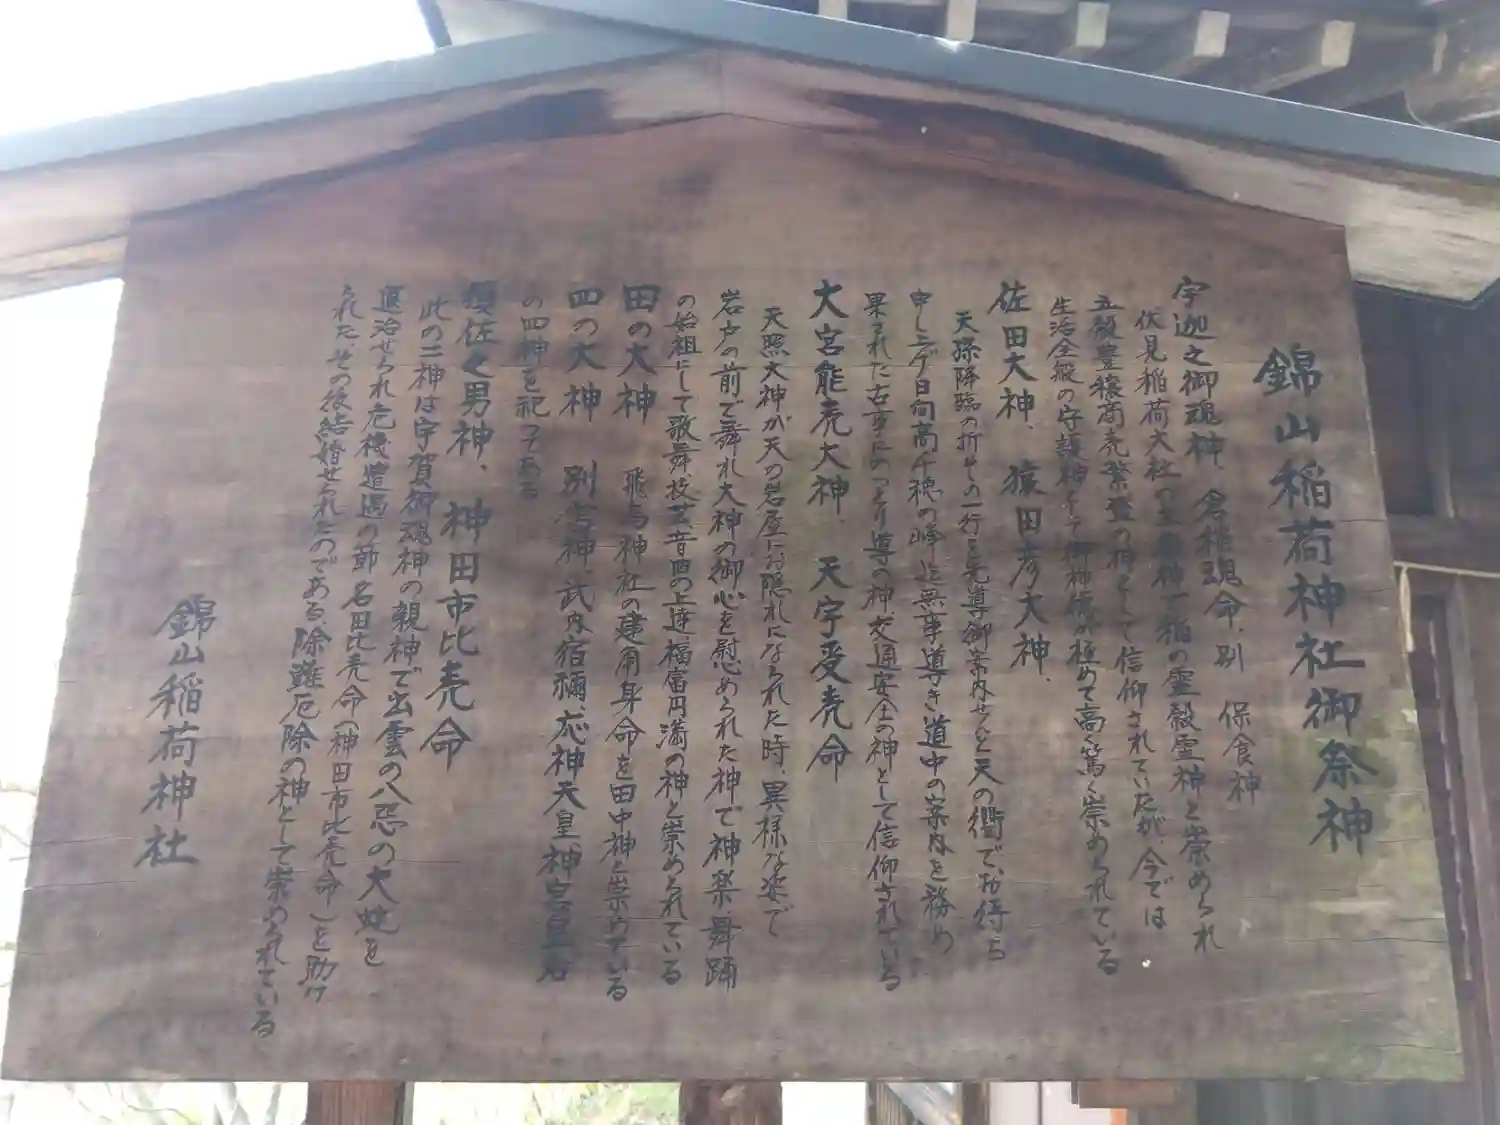 錦山稲荷神社御祭神
宇迦之御魂神、倉稲魂命、別 保食神
伏見稲荷大社の主祭神で稲の霊穀霊神と崇められ
五穀豊穣商売繁盛の神として信仰されていたが、今では
生活全般の守護神として御神徳が極めて高く篤く崇められている
佐田大神、猿田彦大神、
天孫降臨の折その一行を先導御案内せんと天の衢でお待ち
申し上げ日向高千穂の峰迄無事導き道中の案内を務め
果された古事にのっとり導の神交通安全の神として信仰されている
大宮能売大神、天宇受売命
天照大神が天の岩屋にお隠れになられた時、異様な姿で
岩戸の前で舞れ大神の御心を慰められた神で神楽、舞踊
の始祖にして歌舞技芸音曲の上達福富円満の神と崇められている
田の大神 飛鳥神社の建角身命を田中神と崇めている
四の大神 別雷神、武内宿禰、応神天皇、神宮皇后
の四神を祀ってある
須佐之男神、神田市比売命
此の二神は宇賀御魂神の親神で出雲の八忍の大蛇を
退治せられ危機遭遇の節名田比売命(神田市比売命)を助け
られた、その後結婚せられたのである、除難厄除の神として崇められている
錦山稲荷神社